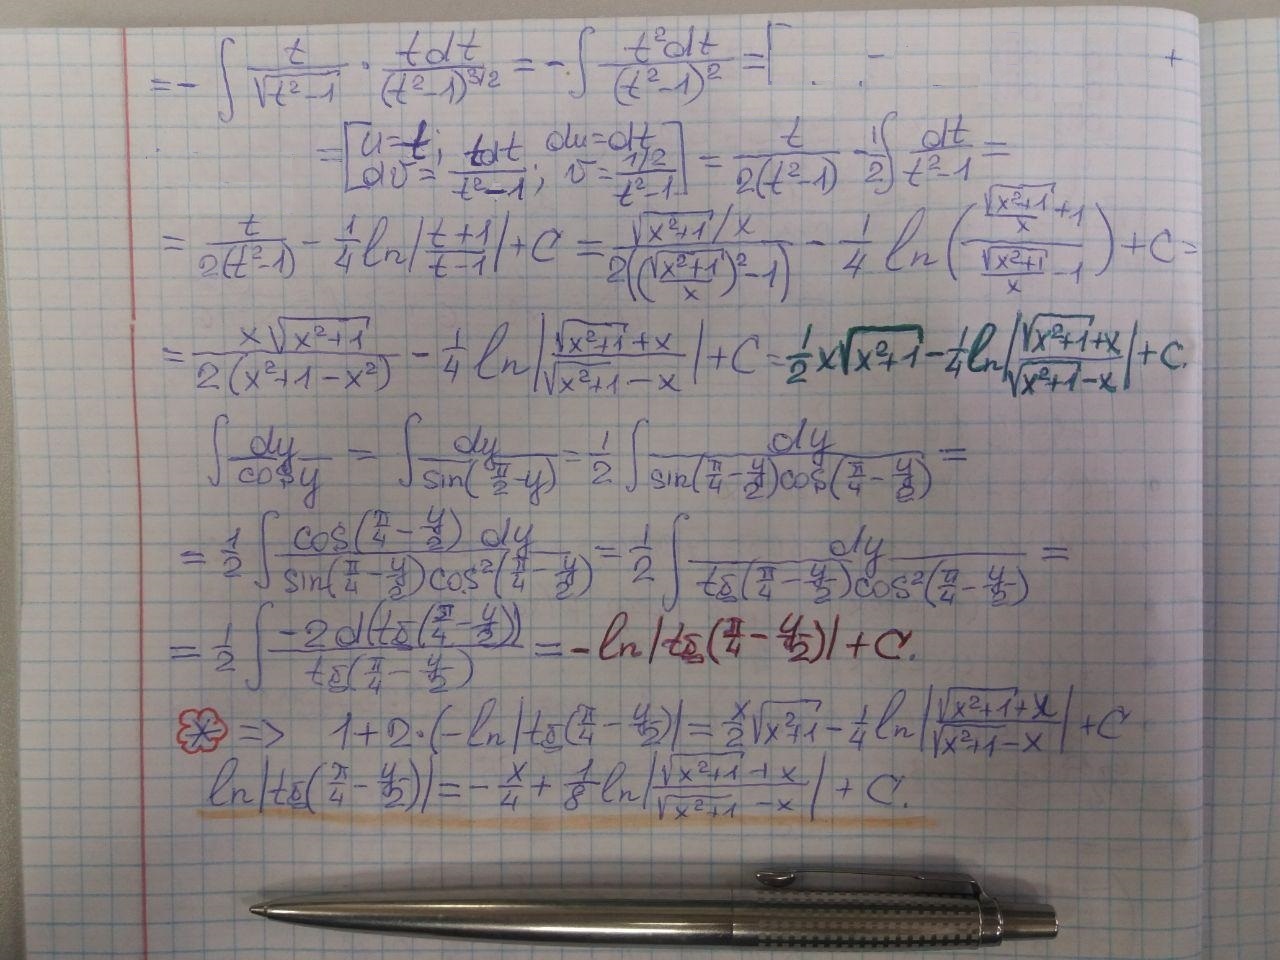 = - ∫ t/√(t²-1) · tdt/(t²-1)^(3/2) = - ∫ t²dt/(t²-1)² = [
= [u=t; du=dt dv= tdt/(t²-1); v= (1/2)/(t²-1)] = t/(2(t²-1)) - 1/2 ∫ dt/(t²-1) =
= t/(2(t²-1)) - 1/4 ln|(t+1)/(t-1)| + C = (√(x²+1)/x)/(2((√(x²+1)/x)²-1)) - 1/4 ln((√(x²+1)/x+1)/(√(x²+1)/x-1)) + C =
= x√(x²+1)/(2(x²+1-x²)) - 1/4 ln|(√(x²+1)+x)/(√(x²+1)-x)| + C = 1/2 x√(x²+1) - 1/4 ln|(√(x²+1)+x)/(√(x²+1)-x)| + C.
∫ dy/cos y = ∫ dy/sin(π/2-y) = 1/2 ∫ dy/(sin(π/4-y/2)cos(π/4-y/2)) =
= 1/2 ∫ cos(π/4-y/2) dy/(sin(π/4-y/2)cos²(π/4-y/2)) = 1/2 ∫ dy/(tg(π/4-y/2)cos²(π/4-y/2)) =
= 1/2 ∫ -2d(tg(π/4-y/2))/tg(π/4-y/2) = -ln|tg(π/4-y/2)| + C.
* => 1+2·(-ln|tg(π/4-y/2)| = x/2 √(x²+1) - 1/4 ln|(√(x²+1)+x)/(√(x²+1)-x)| + C
ln|tg(π/4-y/2)| = -x/4 + 1/8 ln|(√(x²+1)+x)/(√(x²+1)-x)| + C.